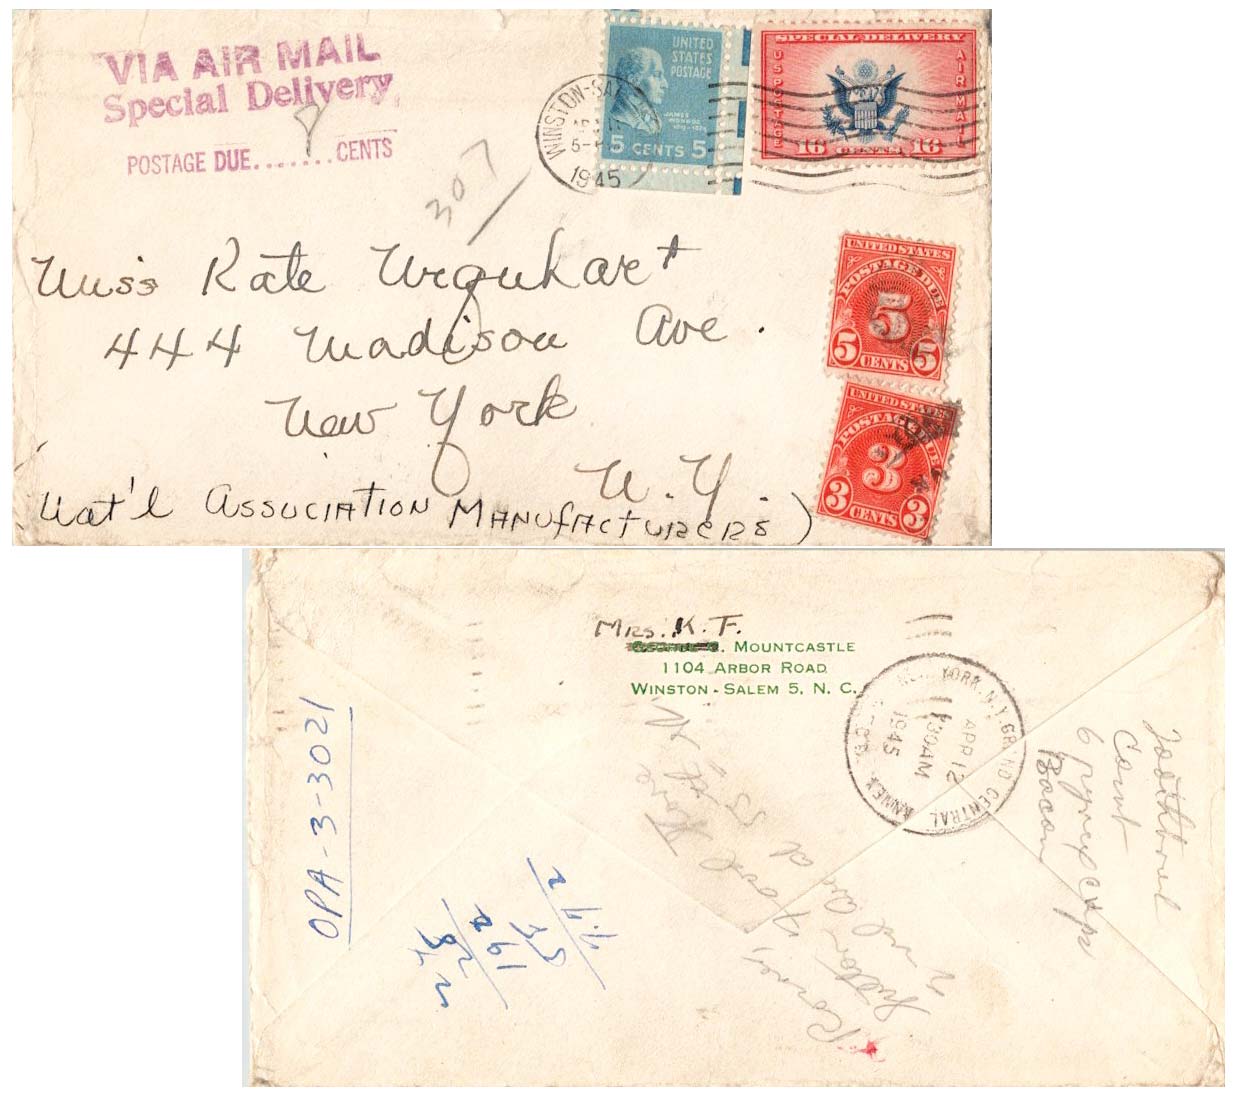 VIA AIR MAIL
Special Delivery
POSTAGE DUE.......CENTS
8
307
WINSTON-SA
APR 11
1945
UNITED
STATES
POSTAGE
JAMES
MONROE
5 CENTS 5
SPECIAL DELIVERY
U S POSTAGE
AIR MAIL
16 CENTS 16
Miss Kate Urquhart
444 Madison Ave.
New York
N.Y.
(Nat'l ASSOCIATION MANUFACTURERS)
UNITED STATES
POSTAGE DUE
5
5 CENTS 5
UNITED STATES
POSTAGE DUE
3
3 CENTS 3
MRS. K. F.
MOUNTCASTLE
1104 ARBOR ROAD
WINSTON-SALEM 5, N. C.
NEW YORK, N.Y. GRAND CENTRAL ANNEX
APR 12
730AM
1945
OPA-3-3021
Corner,
Sutton Food Store
2nd Ave at 53 St
Toothbrush
Comt
6
Bacon